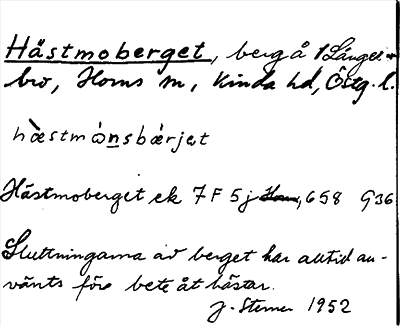 Hästmoberget, berg å Långe-
bro, Horns sn, Kinda hd, Östg. l.
hæstmònsbærjet
Hästmoberget ek 7F 5j, 658 G36
Sluttningarna av berget har alltid an-
vänts före bete åt hästar.
J. Sterner 1952